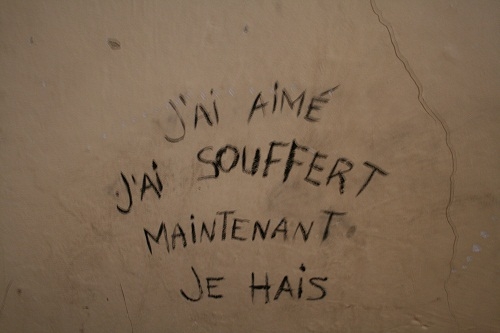 J'Ai AiMÉ
J'Ai SOUFFERT
MAiNTENANT
JE HAiS